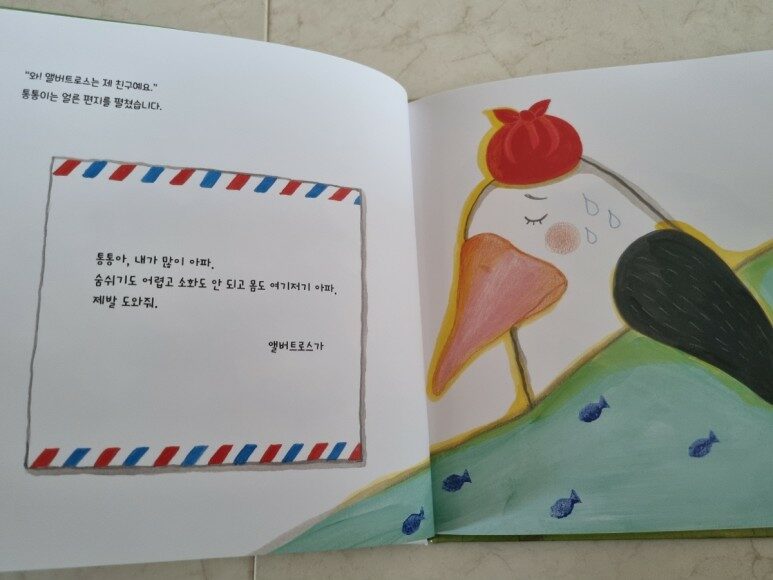 "와! 앨버트로스는 제 친구예요."
통통이는 얼른 편지를 펼쳤습니다.
통통아, 내가 많이 아파.
숨쉬기도 어렵고 소화도 안 되고 몸도 여기저기 아파.
제발 도와줘.
앨버트로스가